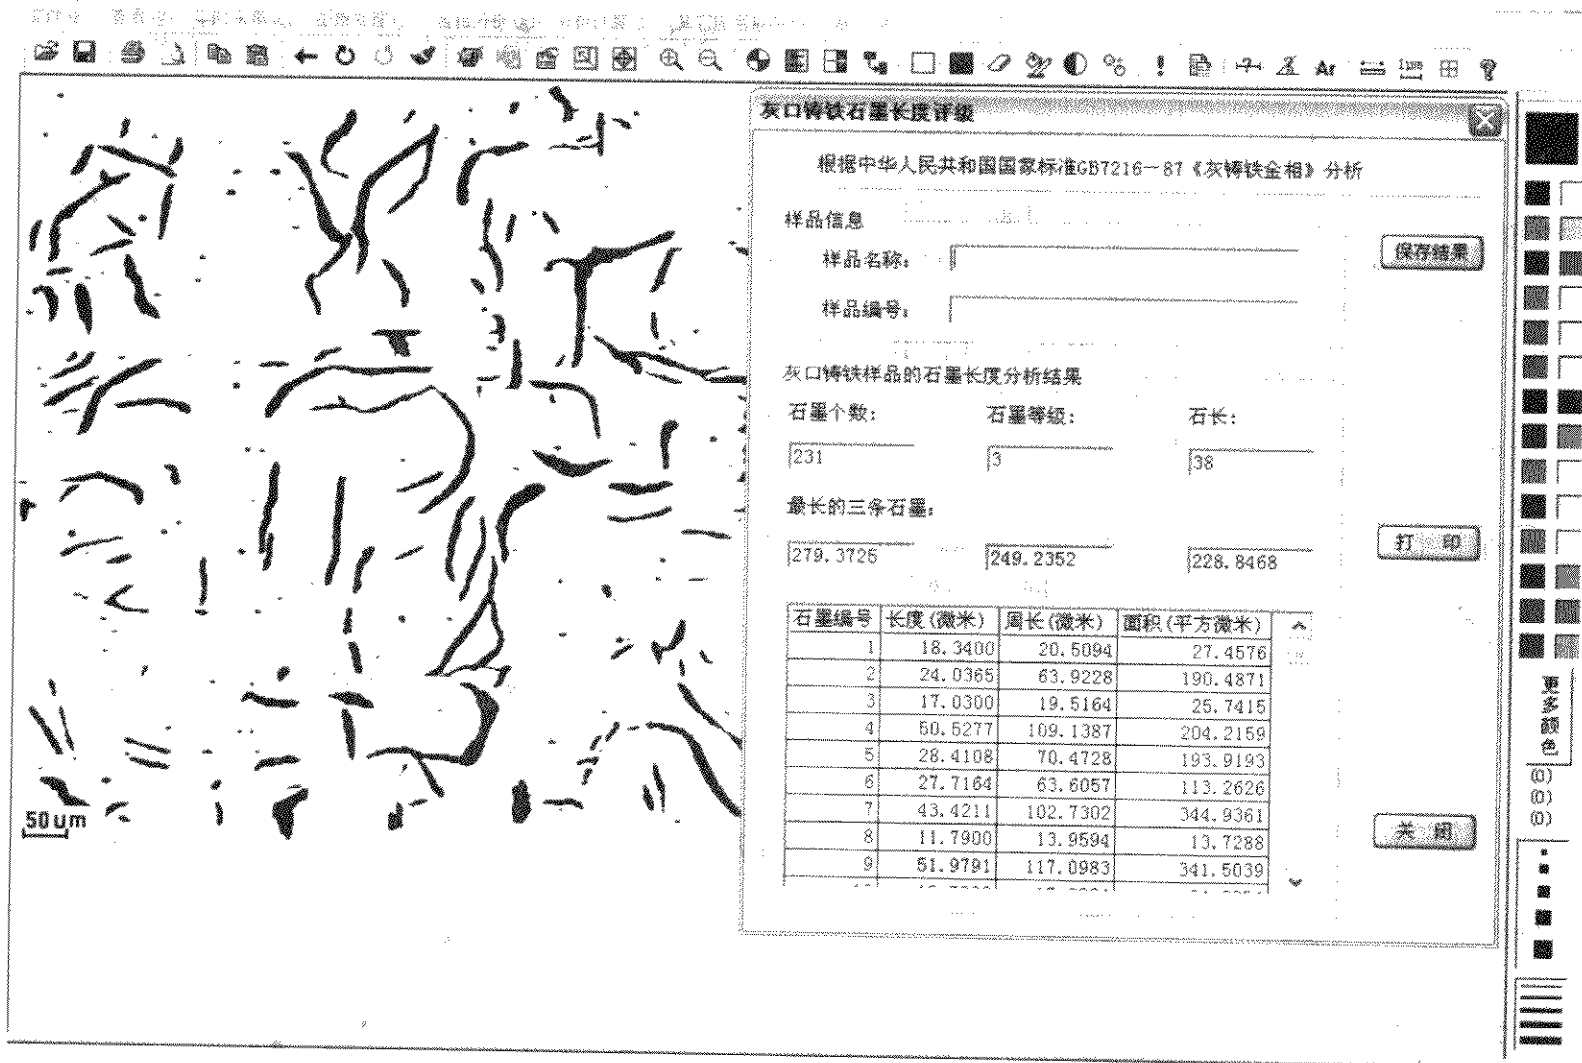 Ar
1μm
灰口铸铁石墨长度评级
根据中华人民共和国国家标准GB7216－87《灰铸铁金相》分析
样品信息
样品名称:
保存结果
样品编号:
灰口铸铁样品的石墨长度分析结果
石墨个数: 石墨等级: 石长:
231 3 38
最长的三条石墨:
279.3726 249.2352 228.8468
打 印
石墨编号 长度(微米) 周长(微米) 面积(平方微米)
1 18.3400 20.5094 27.4576
2 24.0365 63.9228 190.4871
3 17.0300 19.5164 25.7415
4 50.5277 109.1387 204.2159
5 28.4108 70.4728 193.9193
6 27.7164 63.6057 113.2626
7 43.4211 102.7302 344.9361
8 11.7900 13.9594 13.7288
9 51.9791 117.0983 341.5039
关 闭
50um
更多颜色
(0)
(0)
(0)